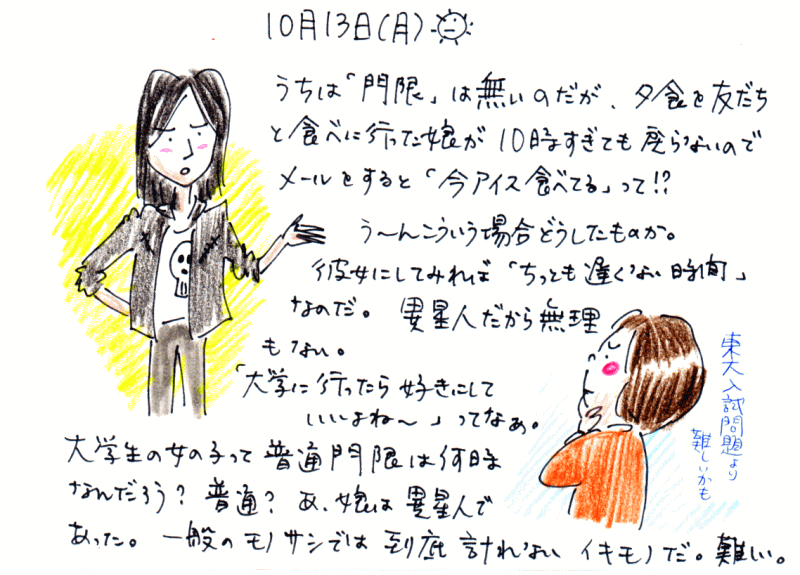 10月13日(月)
うちは「門限」は無いのだが、夕食を友だち
と食べに行った娘が10時すぎても戻らないので
メールをすると「今アイス食べてる」って!?
う〜んこういう場合どうしたものか。
彼女にしてみれば「ちっとも遅くない時間」
なのだ。異星人だから無理
もない。
「大学に行ったら好きにして
いいよね〜」ってなぁ。
大学生の女の子って普通門限は何時
なんだろう?普通?あ、娘は異星人で
あった。一般のモノサシでは到底計れないイキモノだ。難しい。
東大入試問題より
難しいかも